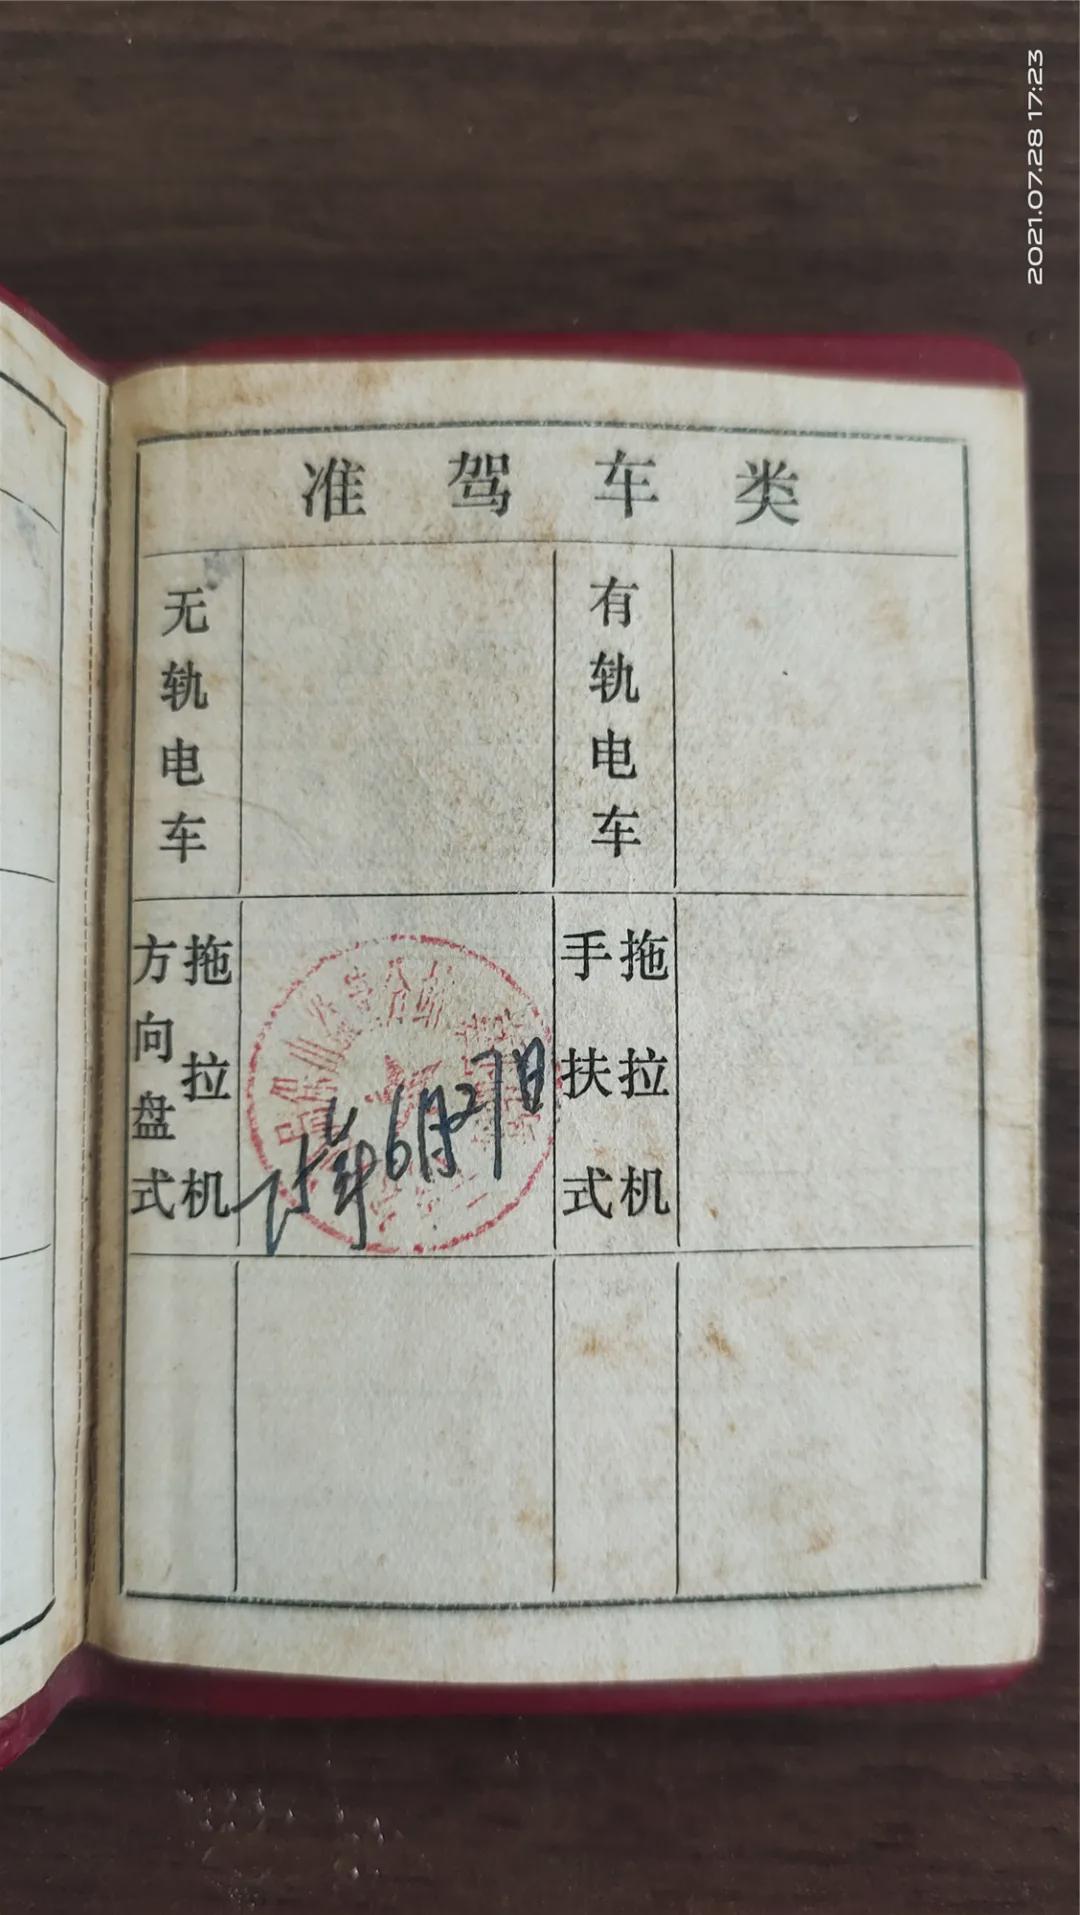 2021.07.28 17:23
准驾车类
无轨电车
有轨电车
方向盘式拖拉机
75年6月27日
手扶式拖拉机